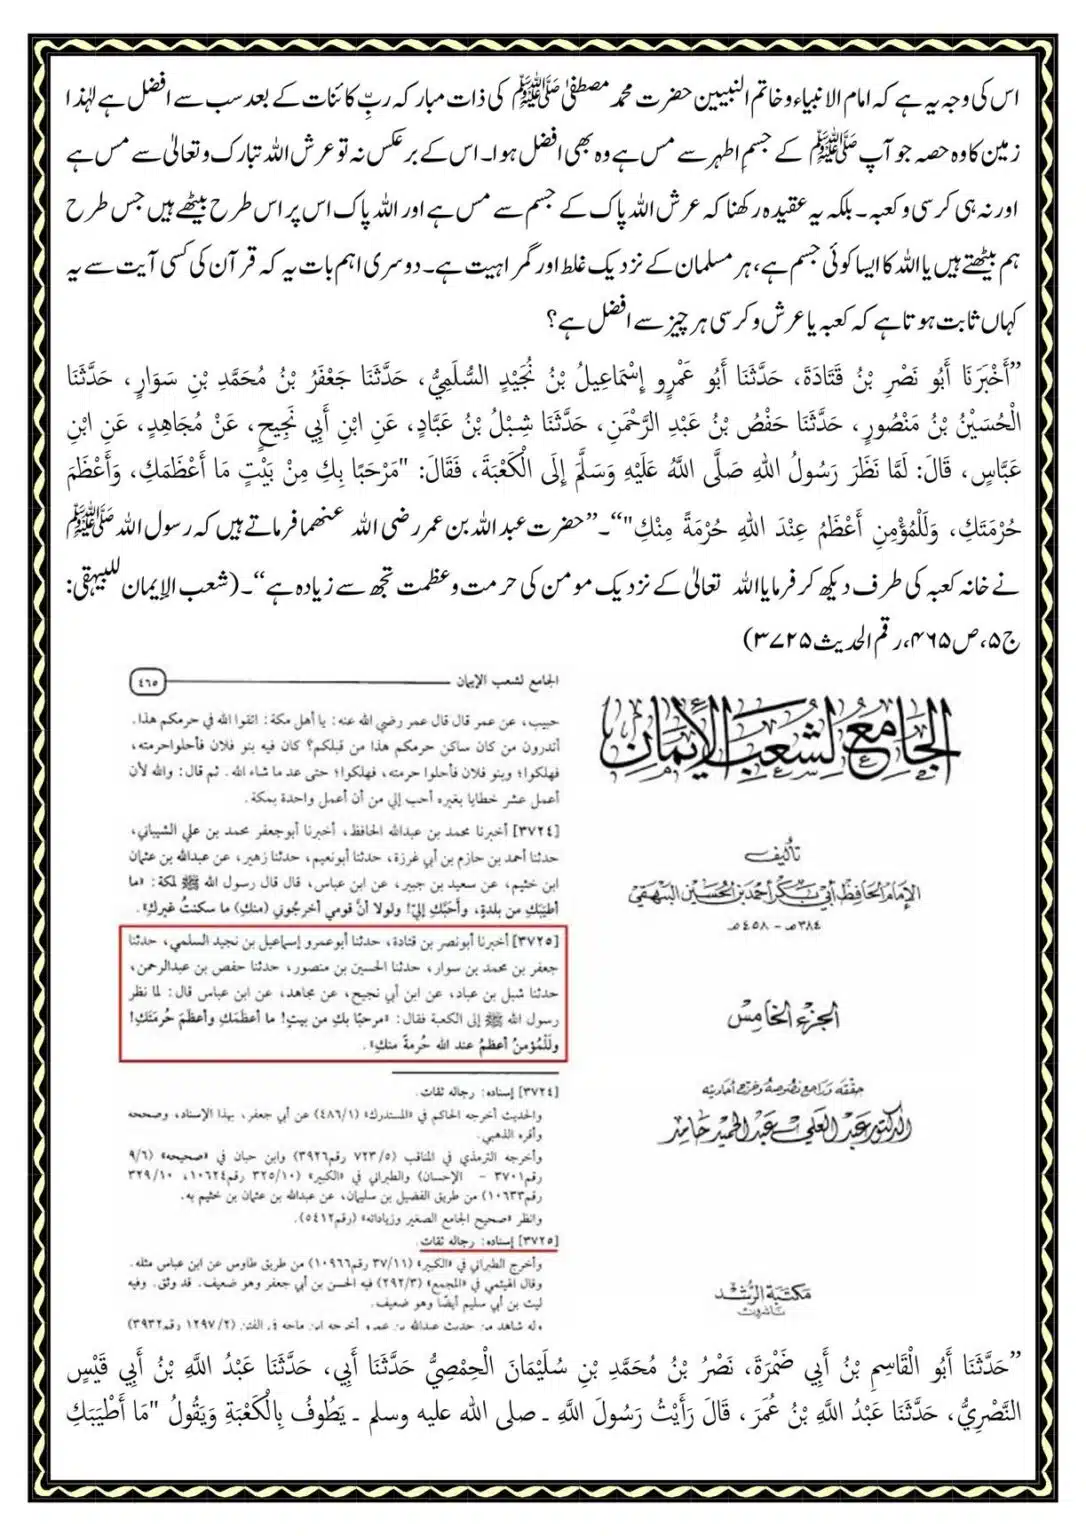 اس کی وجہ یہ ہے کہ امام الانبیاء و خاتم النبیین حضرت محمد مصطفیٰ ﷺ کی ذات مبارکہ ربِّ کائنات کے بعد سب سے افضل ہے لہٰذا
زمین کا وہ حصہ جو آپ ﷺ کے جسمِ اطہر سے مس ہے وہ بھی افضل ہوا۔ اس کے برعکس نہ تو عرش اللہ تبارک وتعالیٰ سے مس ہے
اور نہ ہی کرسی و کعبہ۔ بلکہ یہ عقیدہ رکھنا کہ عرش اللہ پاک کے جسم سے مس ہے اور اللہ پاک اس پر اس طرح بیٹھے ہیں جس طرح
ہم بیٹھتے ہیں یا اللہ کا ایسا کوئی جسم ہے، ہر مسلمان کے نزدیک غلط اور گمراہیت ہے۔ دوسری اہم بات یہ کہ قرآن کی کسی آیت سے یہ
کہاں ثابت ہوتا ہے کہ کعبہ یا عرش و کرسی ہر چیز سے افضل ہے؟
”أَخْبَرَنَا أَبُو نَصْرِ بْنُ قَتَادَةَ، حَدَّثَنَا أَبُو عَمْرٍو إِسْمَاعِيلُ بْنُ نُجَيْدٍ السُّلَمِيُّ، حَدَّثَنَا جَعْفَرُ بْنُ مُحَمَّدِ بْنِ سَوَارٍ، حَدَّثَنَا
الْحُسَيْنُ بْنُ مَنْصُورٍ، حَدَّثَنَا حَفْصُ بْنُ عَبْدِ الرَّحْمَنِ، حَدَّثَنَا شِبْلُ بْنُ عَبَّادٍ، عَنِ ابْنِ أَبِي نَجِيحٍ، عَنْ مُجَاهِدٍ، عَنِ ابْنِ
عَبَّاسٍ، قَالَ: لَمَّا نَظَرَ رَسُولُ اللهِ صَلَّى اللَّهُ عَلَيْهِ وَسَلَّمَ إِلَى الْكَعْبَةَ، فَقَالَ: "مَرْحَبًا بِكِ مِنْ بَيْتٍ مَا أَعْظَمَكِ، وَأَعْظَمَ
حُرْمَتَكِ، وَلَلْمُؤْمِنِ أَعْظَمُ عِنْدَ اللهِ حُرْمَةً مِنْكِ"“۔ ”حضرت عبد اللہ بن عمر رضی اللہ عنھما فرماتے ہیں کہ رسول اللہ ﷺ
نے خانہ کعبہ کی طرف دیکھ کر فرمایا اللہ تعالیٰ کے نزدیک مومن کی حرمت و عظمت تجھ سے زیادہ ہے“۔ (شعب الإيمان للبيهقی:
ج۵، ص۴۶۵، رقم الحدیث ۳۷۲۵)
الجامع لشعب الإيمان ٤٦٥
حبيب، عن عمر قال قال عمر رضي الله عنه: يا أهل مكة: اتقوا الله في حرمكم هذا.
أتدرون من كان ساكن حرمكم هذا من قبلكم؟ كان فيه بنو فلان فأحلوا حرمته،
فهلكوا؛ وبنو فلان فأحلوا حرمته، فهلكوا؛ حتى عد ما شاء الله. ثم قال: والله لأن
أعمل عشر خطايا بغيره أحب إلي من أن أعمل واحدة بمكة.
[٣٧٢٤] أخبرنا محمد بن عبدالله الحافظ، أخبرنا أبوجعفر محمد بن علي الشيباني،
حدثنا أحمد بن حازم بن أبي غرزة، حدثنا أبونعيم، حدثنا زهير، عن عبدالله بن عثمان
ابن خثيم، عن سعيد بن جبير، عن ابن عباس، قال قال رسول الله ﷺ لمكة: «ما
أطيَبَكِ من بلدةٍ، وأحَبَّكِ إليَّ! ولولا أنَّ قومي أخرجُوني (منكِ) ما سكنتُ غيركِ».
[٣٧٢٥] أخبرنا أبونصر بن قتادة، حدثنا أبوعمرو إسماعيل بن نجيد السلمي، حدثنا
جعفر بن محمد بن سوار، حدثنا الحسين بن منصور، حدثنا حفص بن عبدالرحمن،
حدثنا شبل بن عباد، عن ابن أبي نجيح، عن مجاهد، عن ابن عباس قال: لما نظر
رسول الله ﷺ إلى الكعبة فقال: «مرحبًا بكِ من بيتٍ! ما أعظَمَكِ وأعظَمَ حُرمَتَكِ!
ولَلْمُؤمنُ أعظمُ عند الله حُرمةً منكِ».
[٣٧٢٤] إسناده: رجاله ثقات.
والحديث أخرجه الحاكم في «المستدرك» (٤٨٦/١) عن أبي جعفر، بهذا الإسناد، وصححه
وأقره الذهبي.
وأخرجه الترمذي في المناقب (٧٢٣/٥ رقم٣٩٢٦) وابن حبان في «صحيحه» (٩/٦
رقم٣٧٠١ - الإحسان) والطبراني في «الكبير» (٣٢٥/١٠ رقم١٠٦٢٤، ٣٢٩/١٠
رقم١٠٦٣٣) من طريق الفضيل بن سليمان، عن عبدالله بن عثمان بن خثيم به.
وانظر «صحيح الجامع الصغير وزياداته» (رقم٥٤١٢).
[٣٧٢٥] إسناده: رجاله ثقات.
وأخرج الطبراني في «الكبير» (٣٧/١١ رقم١٠٩٦٦) من طريق طاوس عن ابن عباس مثله.
وقال الهيثمي في «المجمع» (٢٩٢/٣) فيه الحسن بن أبي جعفر وهو ضعيف. قد وثق. وفيه
ليث بن أبي سليم أيضًا وهو ضعيف.
وله شاهد من حديث عبدالله بن عمرو أخرجه ابن ماجه في الفتن (١٢٩٧/٢ رقم٣٩٣٢)
الجامع لشعب الإيمان
تأليف
الإمام الحافظ أبي بكر أحمد بن الحسين البيهقي
٣٨٤هـ - ٤٥٨هـ
الجزء الخامس
حققه وراجع نصوصه وخرج أحاديثه
الدكتور عبد العلي عبد الحميد حامد
مكتبة الرشد
ناشرون
”حَدَّثَنَا أَبُو الْقَاسِمِ بْنُ أَبِي ضَمْرَةَ، نَصْرُ بْنُ مُحَمَّدِ بْنِ سُلَيْمَانَ الْحِمْصِيُّ حَدَّثَنَا أَبِي، حَدَّثَنَا عَبْدُ اللَّهِ بْنُ أَبِي قَيْسٍ
النَّصْرِيُّ، حَدَّثَنَا عَبْدُ اللَّهِ بْنُ عُمَرَ، قَالَ رَأَيْتُ رَسُولَ اللَّهِ ـ صلى الله عليه وسلم ـ يَطُوفُ بِالْكَعْبَةِ وَيَقُولُ "مَا أَطْيَبَكِ